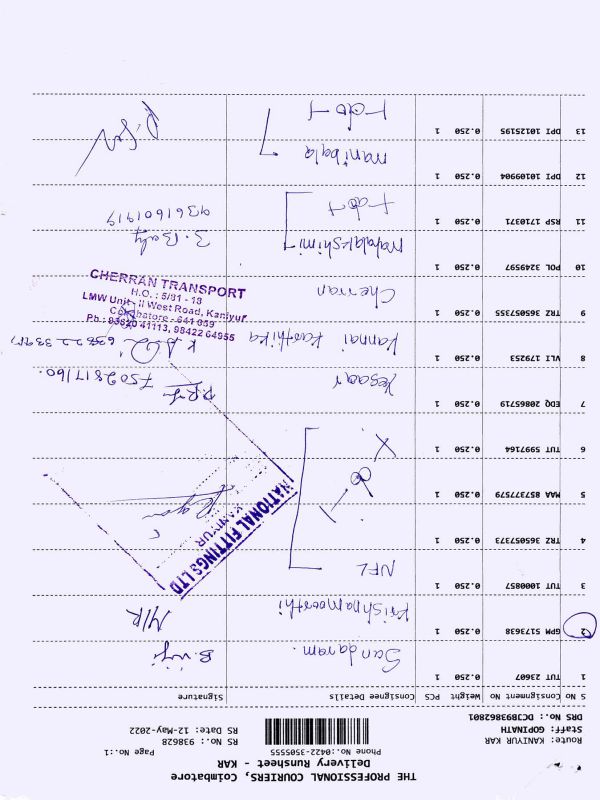 THE PROFESSIONAL COURIERS, Coimbatore
Delivery Runsheet - KAR
Phone No:0422-3505555
Route: KANIYUR KAR
Page No.:1
Staff: GOPINATH
RS No.: 938628
DRS No.: DCJB93862801
RS Date: 12-May-2022
S No Consignment No Weight PCS Consignee Details Signature
1 TUT 23607 0.250 1 Sundaram. B. Viji
2 GPM 5173638 0.250 1 Krishnamoorthi M/R
3 TUT 1000857 0.250 1 NFL
4 TRZ 365057373 0.250 1
5 MAA 857377579 0.250 1 do
6 TUT 5997164 0.250 1
NATIONAL FITTINGS LTD
KANIYUR
7 EDQ 20865719 0.250 1 Kesaar 7502817160.
8 VLL 179253 0.250 1 Kannai Karthika
9 TRZ 365057355 0.250 1 Cherran
CHERRAN TRANSPORT
H.O. : 5/81 - 13
LMW Unit - II West Road, Kaniyur
Coimbatore - 641 659
Ph : 93620 41113, 98422 64955
10 POL 3249597 0.250 1 Mahalakshimi
11 RSP 1710371 0.250 1 +do+ 9361601919
12 DPI 10109904 0.250 1 manibala
13 DPI 10125195 0.250 1 +do+